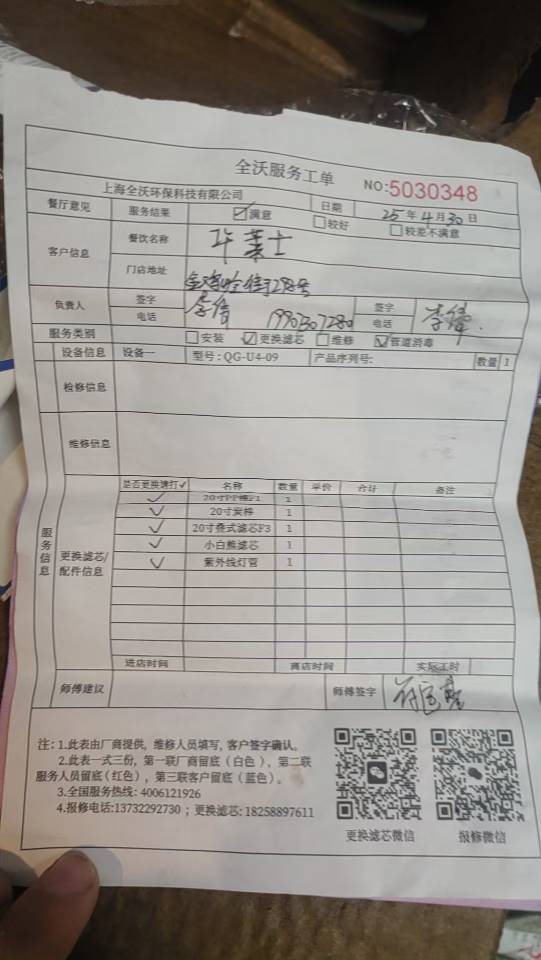 全沃服务工单
NO:5030348
上海全沃环保科技有限公司 日期 25年4月30日
餐厅意见 服务结果 ☑满意 □较好 □较差不满意
客户信息 餐饮名称 华莱士
门店地址 街298号
负责人 签字 李伟 签字 李伟
电话 电话
服务类别 □安装 ☑更换滤芯 □维修 ☑管道消毒
设备信息 设备一 型号:QG-U4-09 产品序列号: 数量 1
检修信息
维修信息
服务信息
更换滤芯/配件信息
是否更换请打✓ 名称 数量 单价 合计 备注
✓ 20寸PP棉F1 1
✓ 20寸炭棒 1
✓ 20寸叠式滤芯F3 1
✓ 小白熊滤芯 1
✓ 紫外线灯管 1
进店时间 离店时间 实际工时
师傅建议 师傅签字
注:1.此表由厂商提供,维修人员填写,客户签字确认。
2.此表一式三份,第一联厂商留底(白色),第二联
服务人员留底(红色),第三联客户留底(蓝色)。
3.全国服务热线:4006121926
4.报修电话:13732292730;更换滤芯:18258897611
更换滤芯微信 报修微信